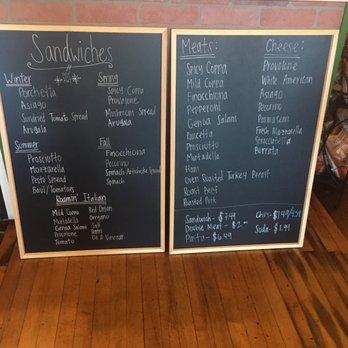 Sandwiches
Winter
Porchetta
Asiago
Sundried Tomato Spread
Arugala
Spring
Spicy Coppa
Provolone
Mushroom Spread
Arugala
Summer
Prosciutto
Mozzarella
Pesto Spread
Basil/Tomatoes
Fall
Finocchiona
Pecorino
Spinach Artichoke Spread
Spinach
Roamin' Italian
Mild Coppa
Mortadella
Genoa Salami
Provolone
Tomato
Red Onion
Oregano
Salt
Pepper
Oil & Vinegar
Meats:
Spicy Coppa
Mild Coppa
Finocchiona
Pepperoni
Genoa Salami
Pancetta
Prosciutto
Mortadella
Ham
Oven Roasted Turkey Breast
Roast Beef
Roasted Pork
Cheese:
Provolone
White American
Asiago
Pecorino
Parmesan
Fresh Mozzarella
Stracciatella
Burrata
Sandwich - $7.49
Double Meat - $2.
Pasta - $6.49
Chips - $1.49/
Soda - $1.99